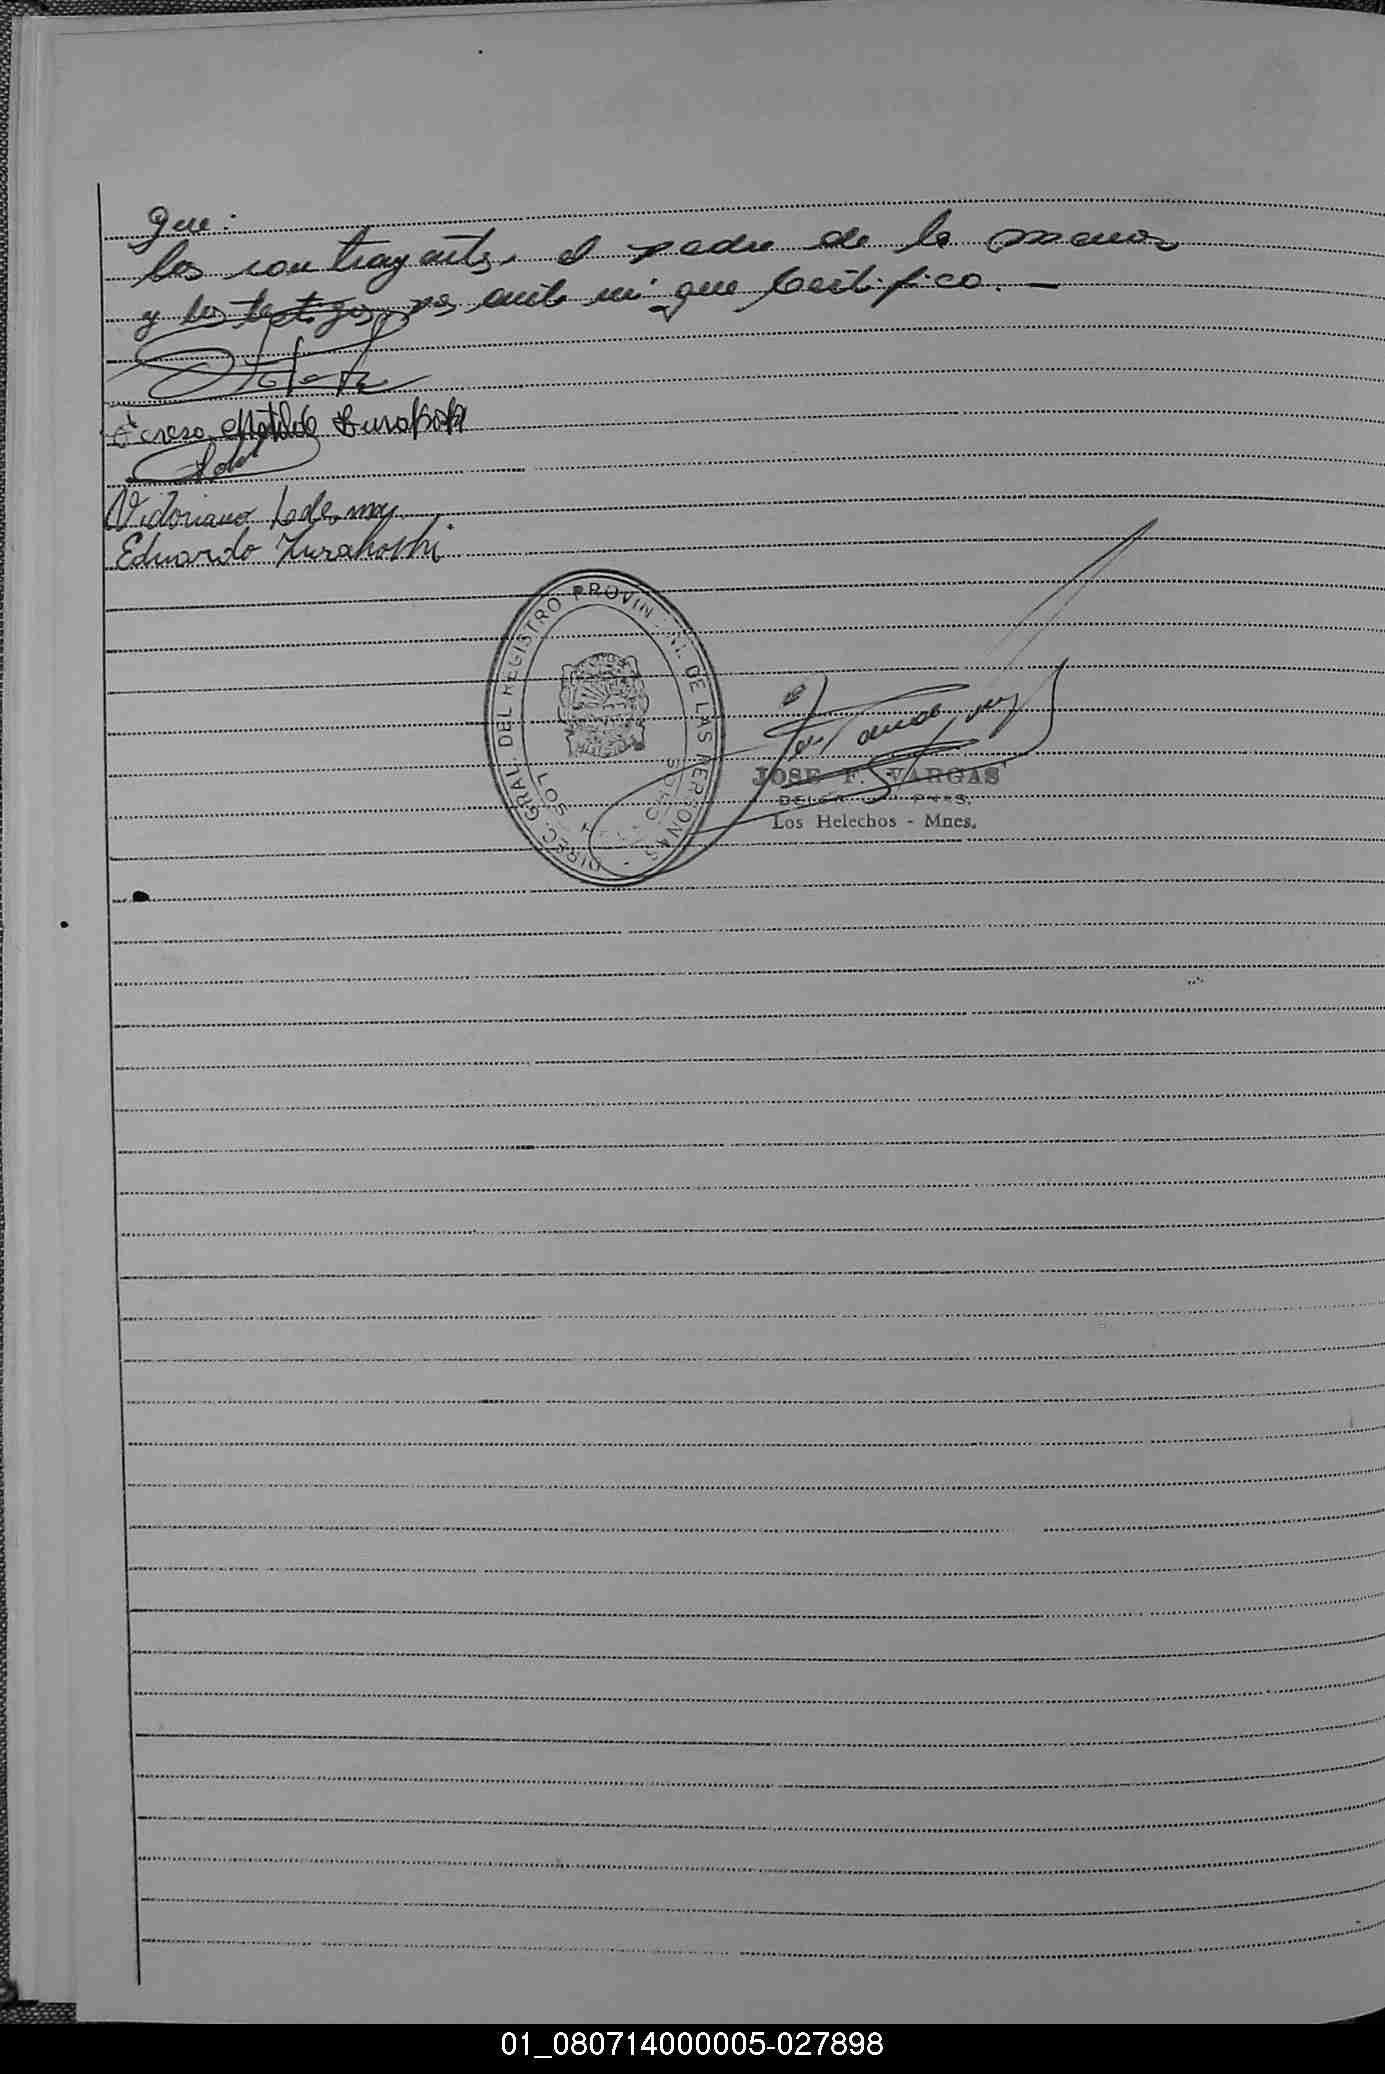 que:
los contrayentes, el padre de la menor
y los testigos, por ante mi que Certifico. —
Teresa Matilde Zurakoski
Victoriano Ledesma
Eduardo Zurakoski
DIREC. GRAL. DEL REGISTRO PROVINCIAL DE LAS PERSONAS -
LOS HELECHOS
JOSE F. VARGAS
Los Helechos - Mnes.
01_080714000005-027898